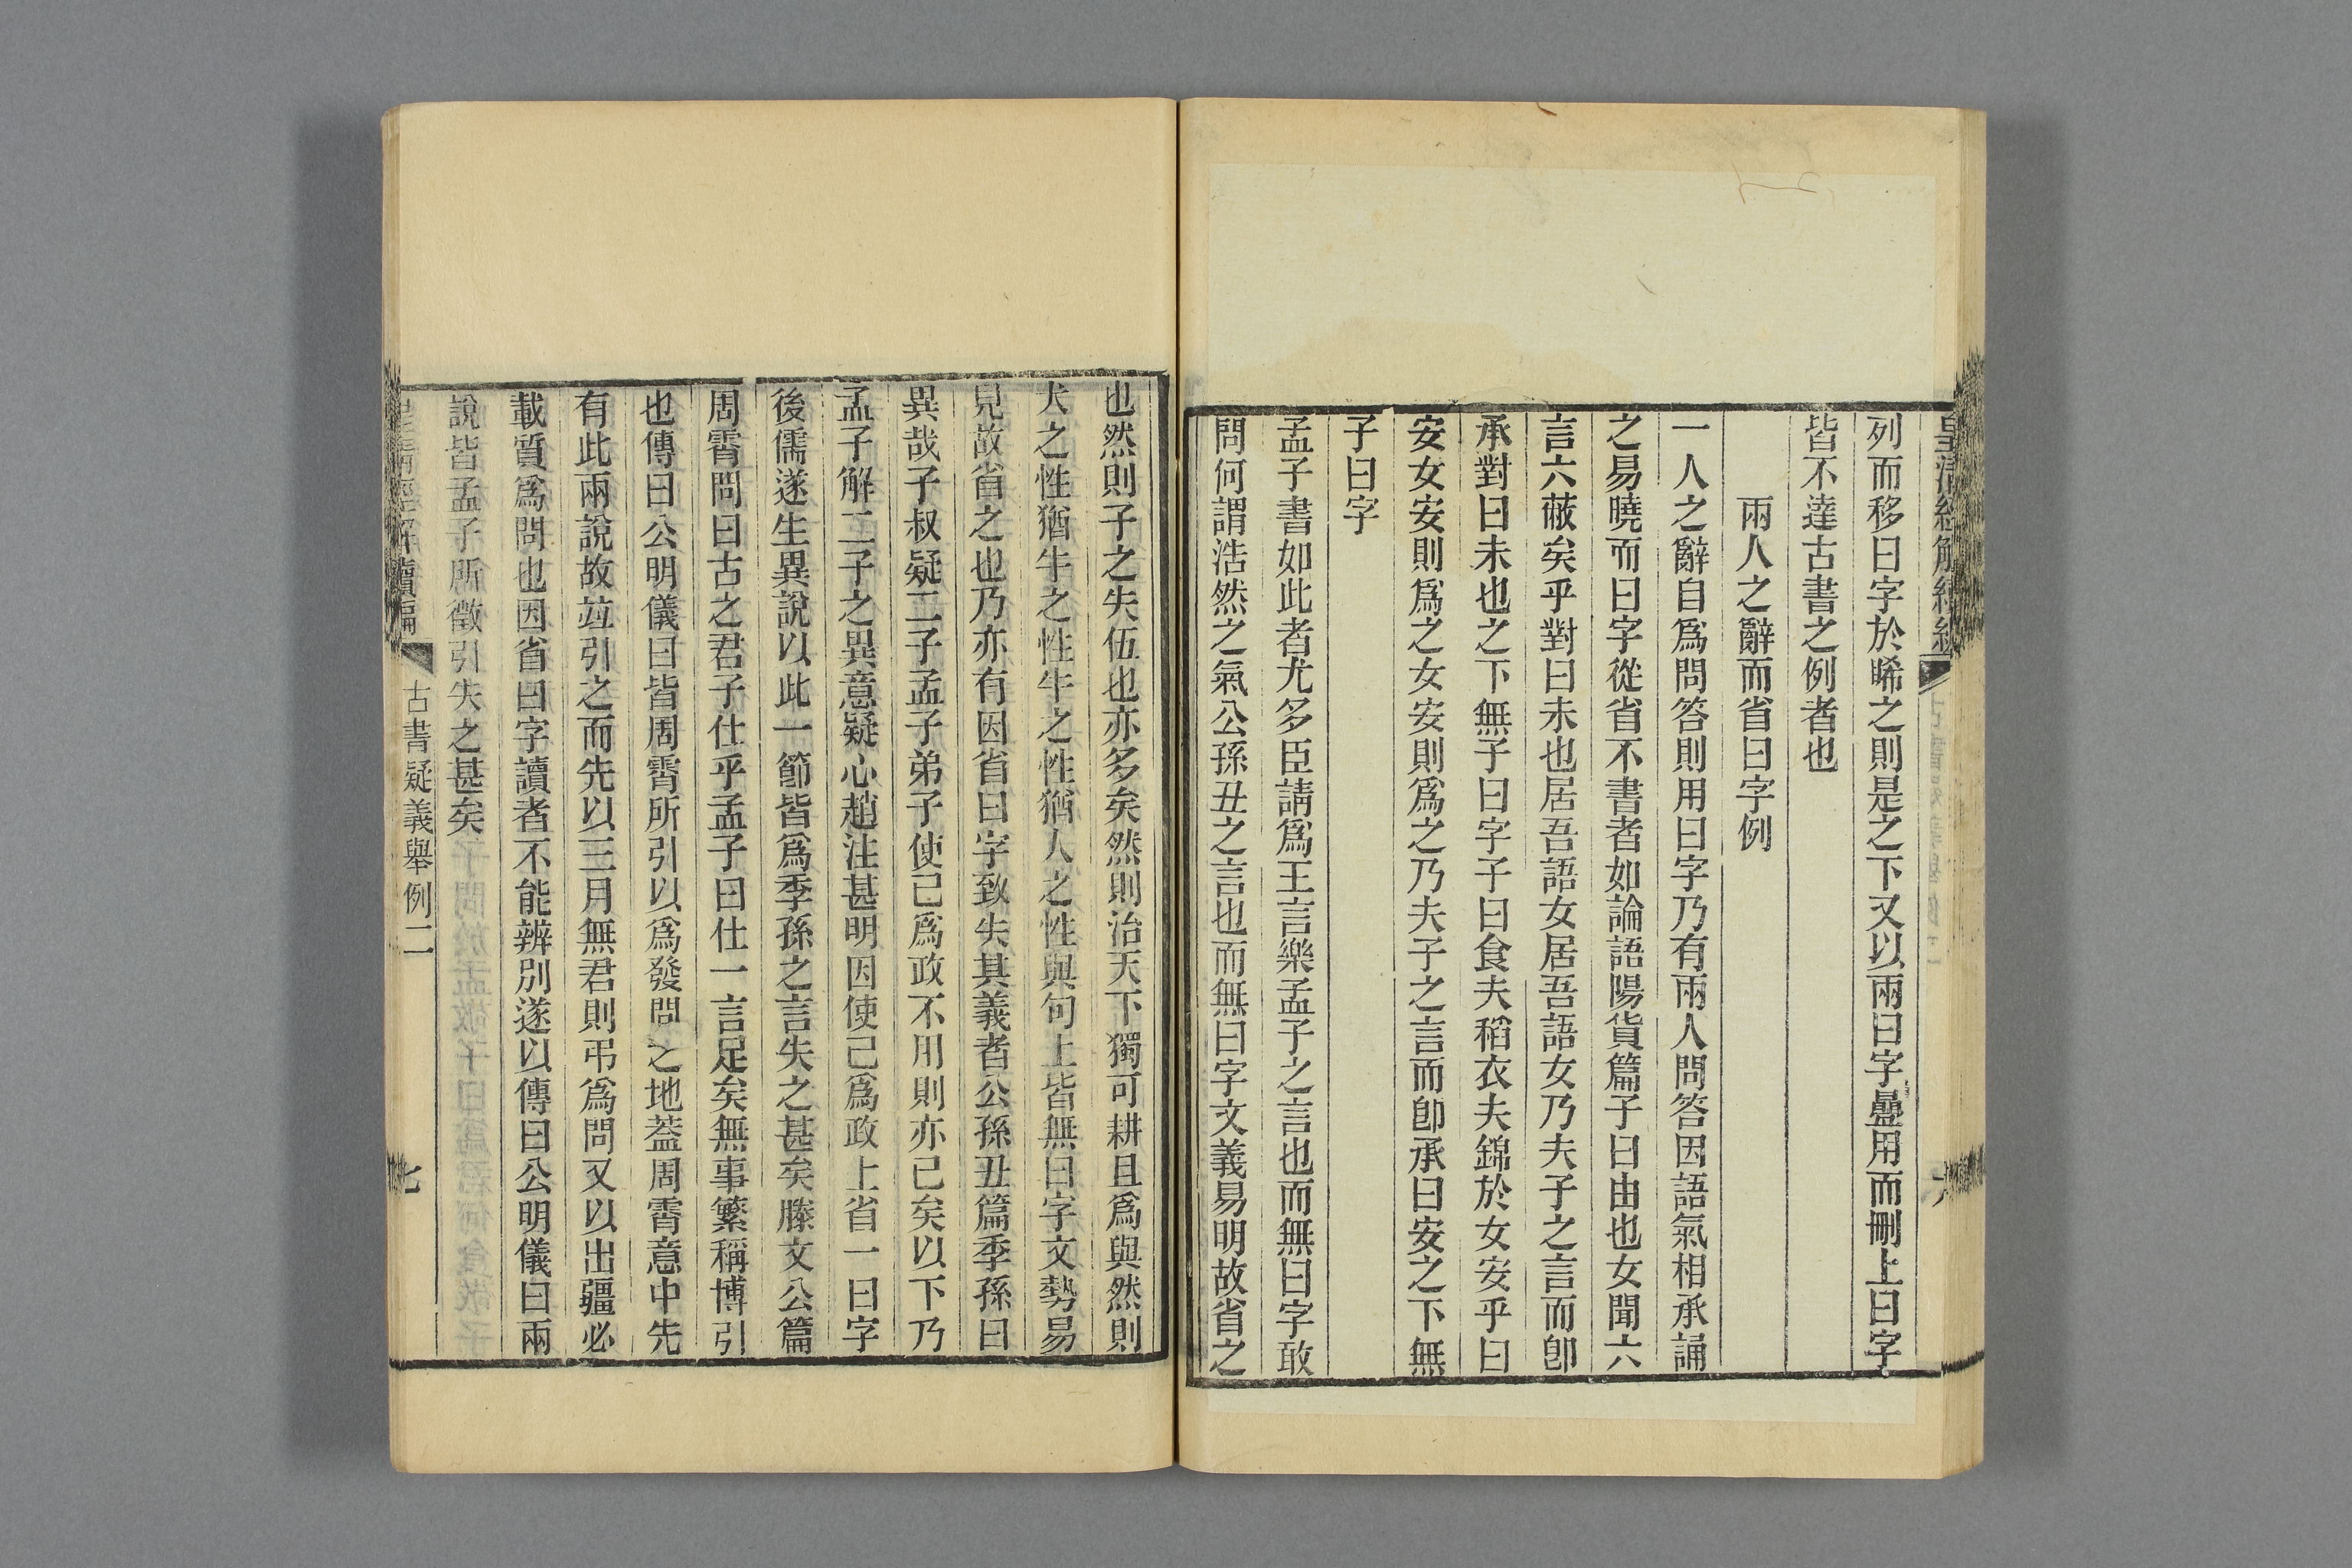 列而移曰字於睎之則是之下又以兩曰字疊用而刪上曰字
皆不達古書之例者也
兩人之辭而省曰字例
一人之辭自爲問答則用曰字乃有兩人問答因語氣相承誦
之易曉而曰字從省不書者如論語陽貨篇子曰由也女聞六
言六蔽矣乎對曰未也居吾語女居吾語女乃夫子之言而卽
承對曰未也之下無子曰字子曰食夫稻衣夫錦於女安乎曰
安女安則爲之女安則爲之乃夫子之言而卽承曰安之下無
子曰字
孟子書如此者尤多臣請爲王言樂孟子之言也而無曰字敢
問何謂浩然之氣公孫丑之言也而無曰字文義易明故省之
也然則子之失伍也亦多矣然則治天下獨可耕且爲與然則
犬之性猶牛之性牛之性猶人之性與句上皆無曰字文勢易
見故省之也乃亦有因省曰字致失其義者公孫丑篇季孫曰
異哉子叔疑二子孟子弟子使己爲政不用則亦已矣以下乃
孟子解二子之異意疑心趙注甚明因使己爲政上省一曰字
後儒遂生異說以此一節皆爲季孫之言失之甚矣滕文公篇
周霄問曰古之君子仕乎孟子曰仕一言足矣無事繁稱博引
也傳曰公明儀曰皆周霄所引以爲發問之地蓋周霄意中先
有此兩說故竝引之而先以三月無君則弔爲問又以出疆必
載質爲問也因省曰字讀者不能辨別遂以傳曰公明儀曰兩
說皆孟子所徵引失之甚矣
古書疑義舉例二
七